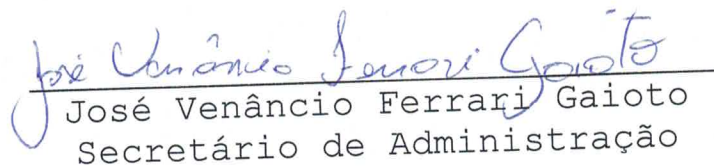 José Venâncio Ferrari Gaioto
José Venâncio Ferrari Gaioto
Secretário de Administração